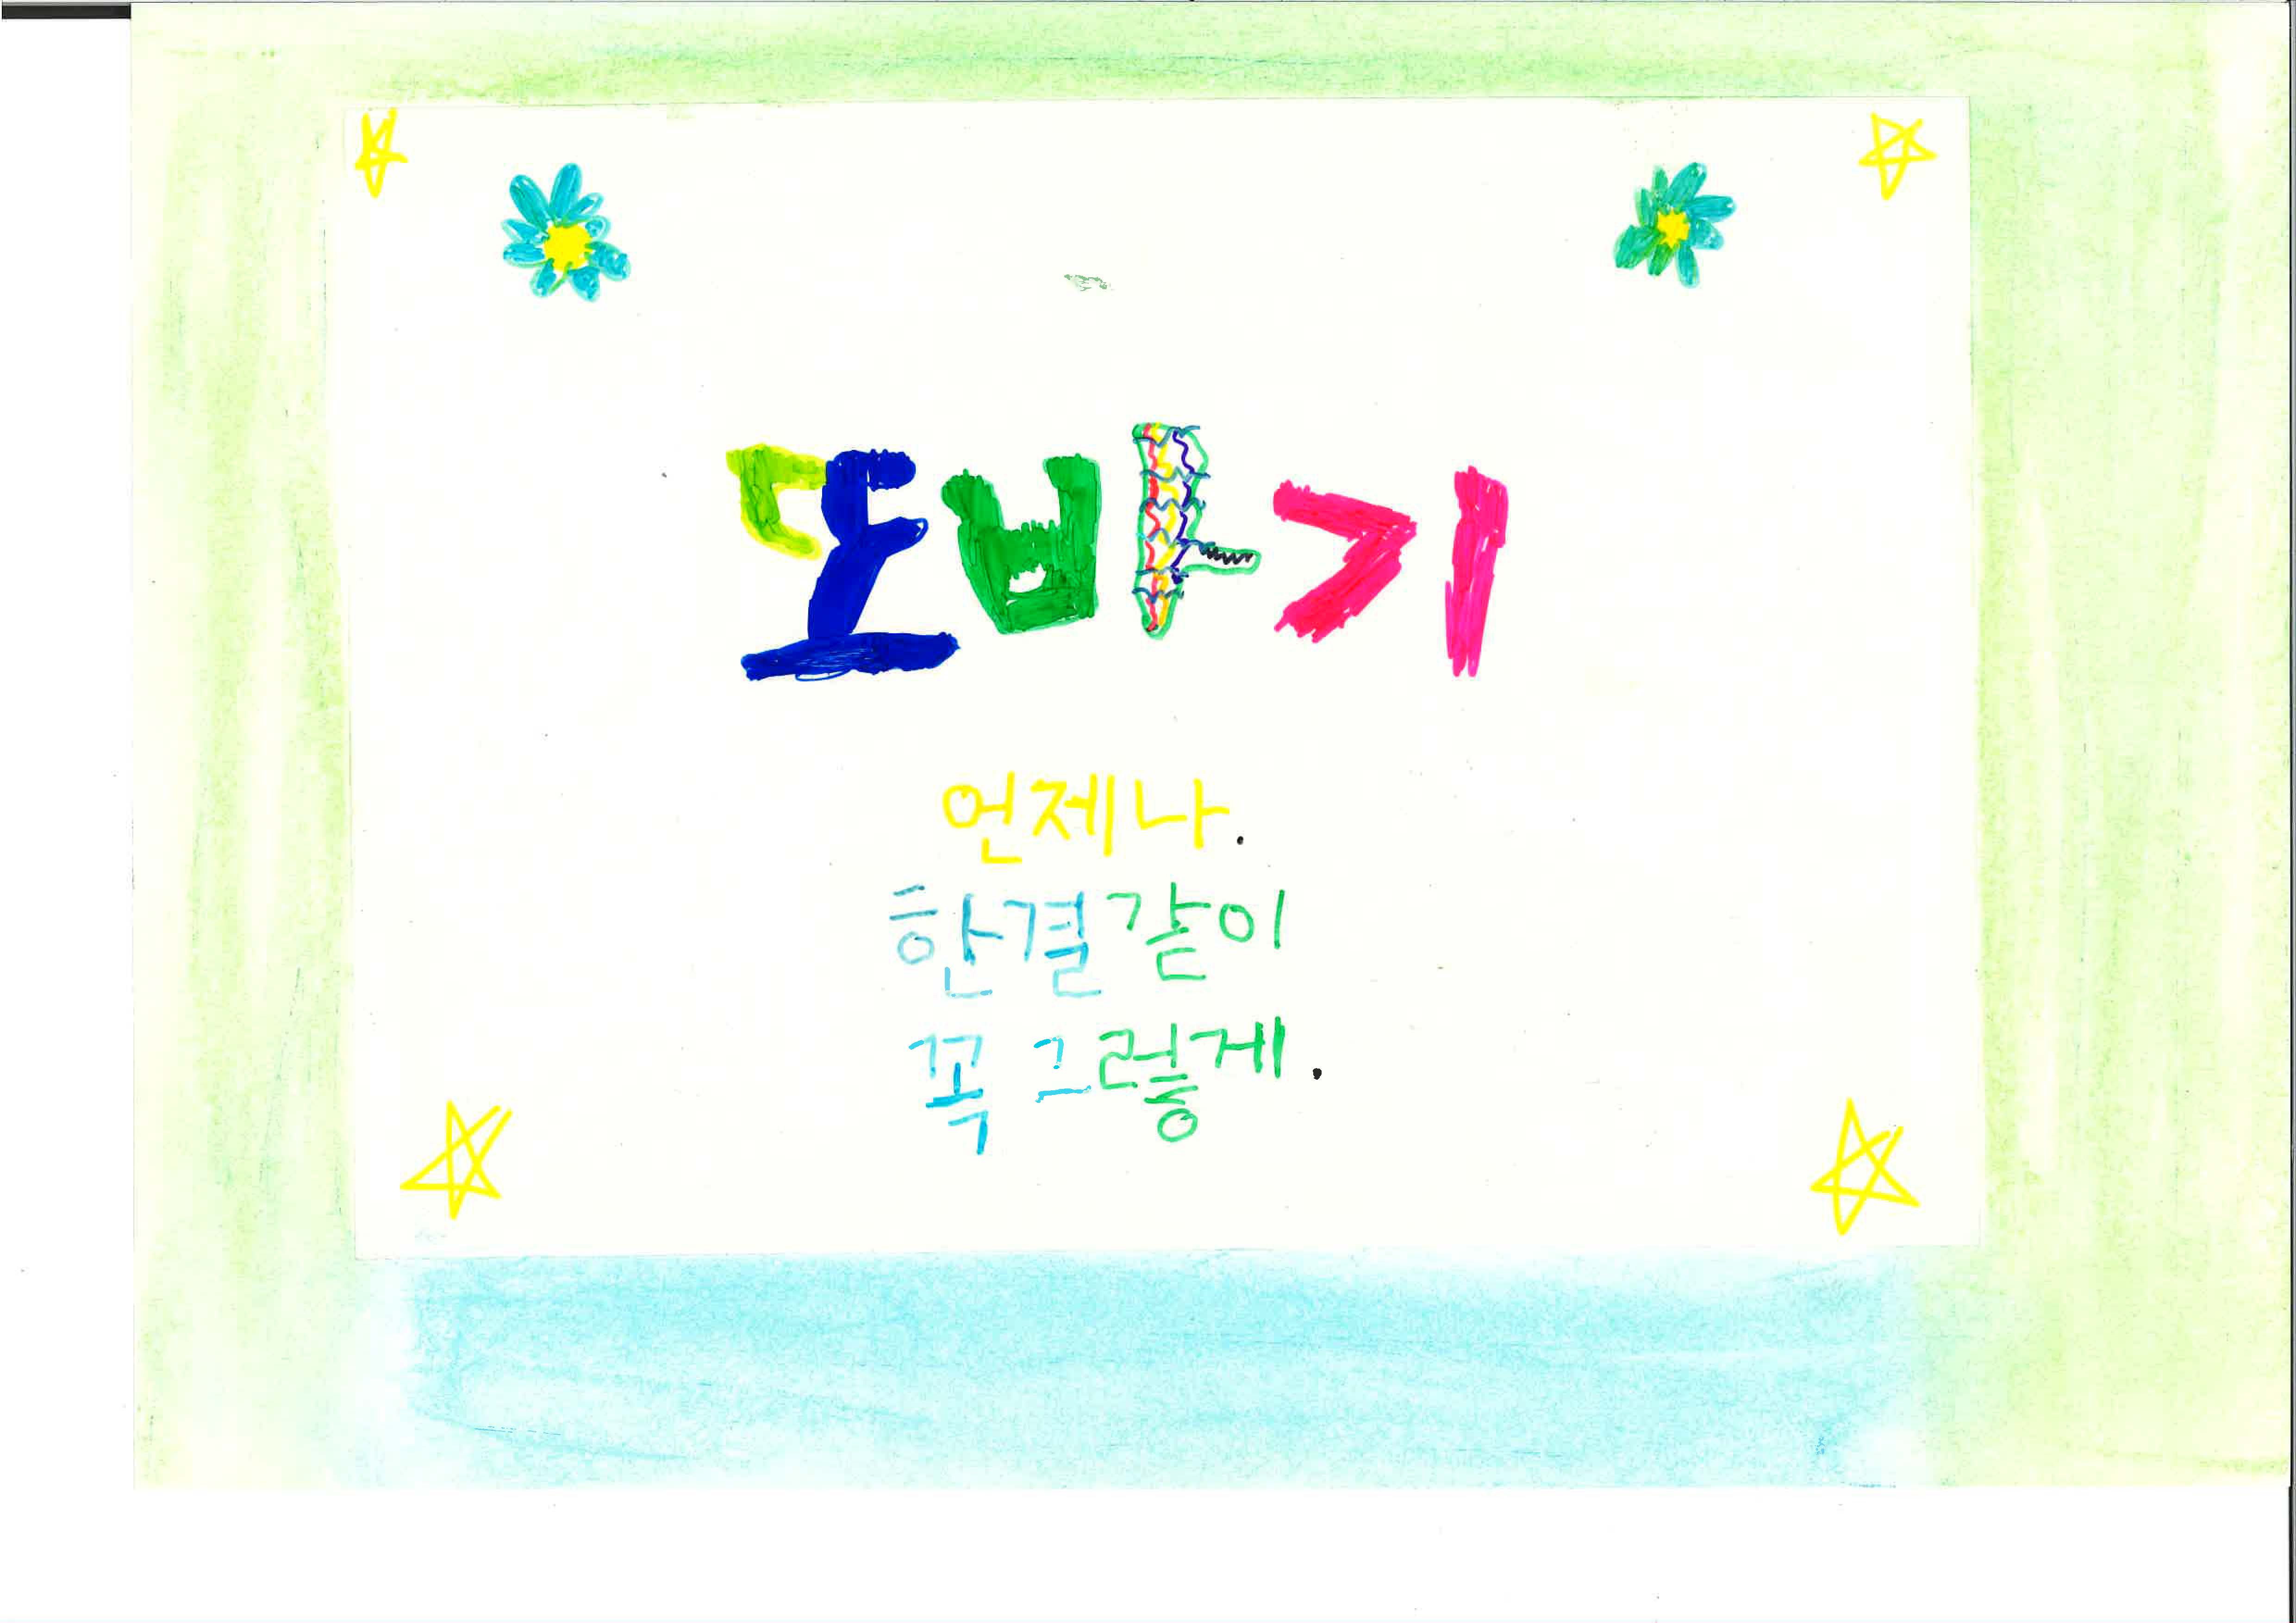 또바기
언제나.
한결같이
꼭 그렇게.